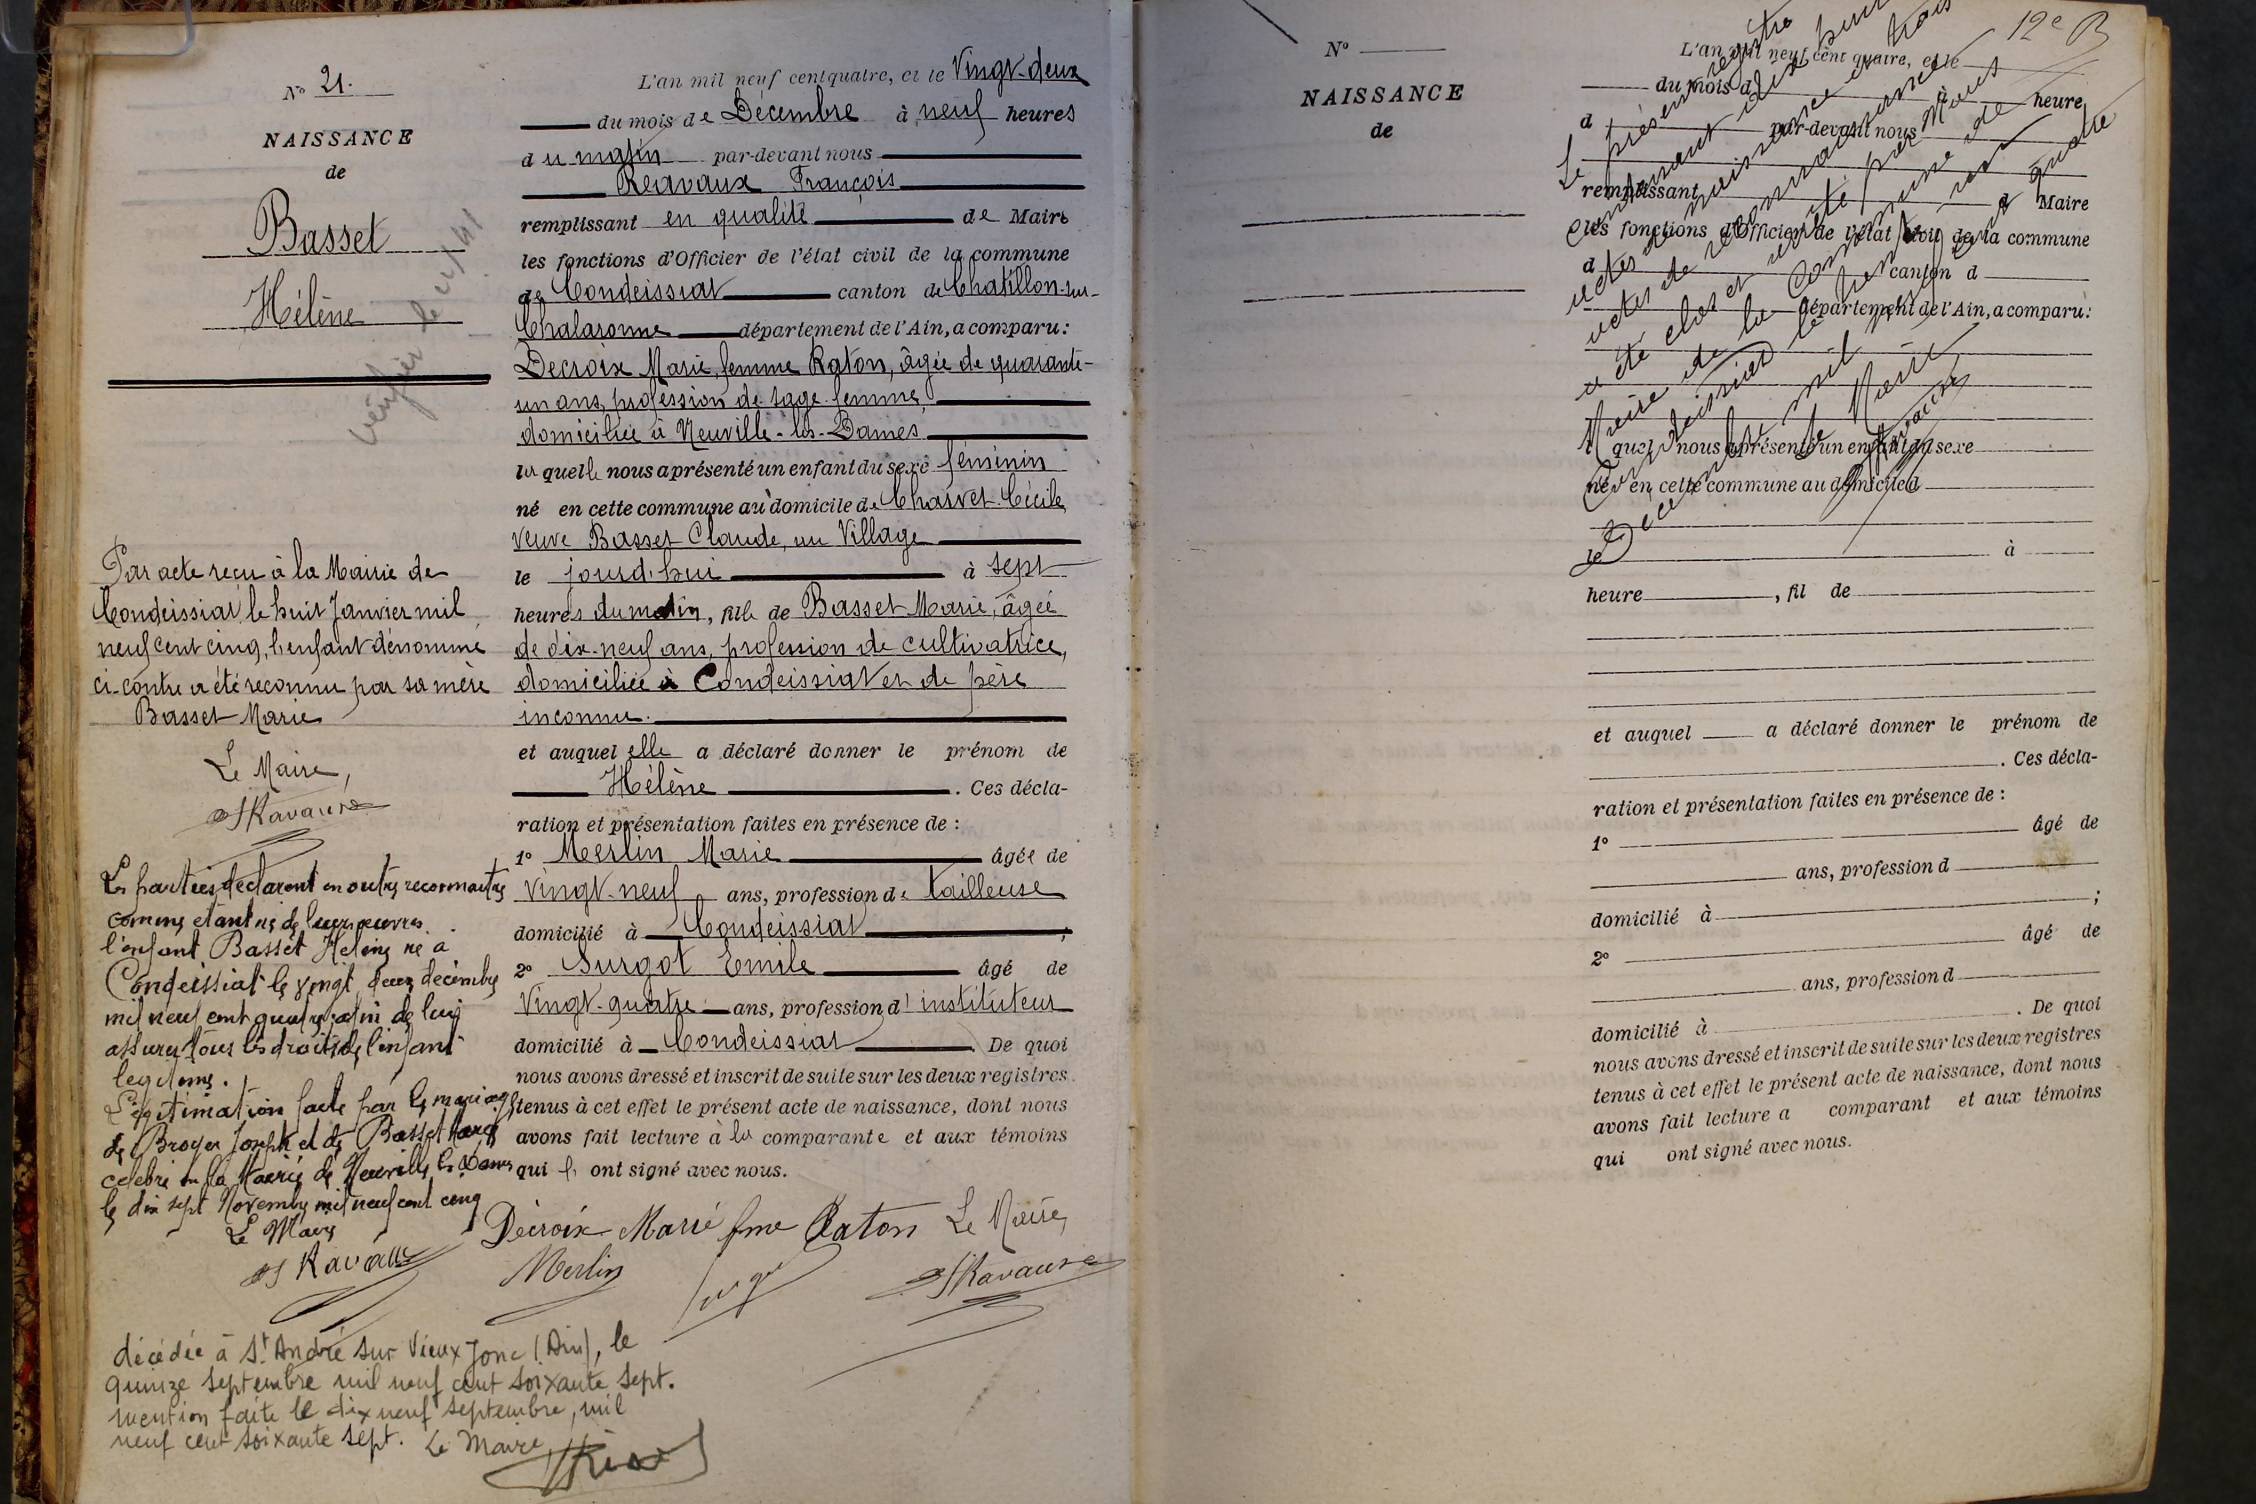 N° 21.
NAISSANCE
de
Basset
Hélène
vérifier le
L'an mil neuf cent quatre, et le Vingt-deux
du mois de Décembre à neuf heures
du matin par-devant nous
Ravaux François
remplissant en qualité de Maire
les fonctions d'Officier de l'état civil de la commune
de Condeissiat canton de Chatillon-sur-
Chalaronne département de l'Ain, a comparu :
Decroix Marie, femme Raton, âgée de quarante-
un ans, profession de sage-femme,
domiciliée à Neuville-les-Dames
laquelle nous a présenté un enfant du sexe féminin
né en cette commune au domicile de Charvet Cécile
veuve Basset Claude, au Village
le jourd'hui à sept
heures du matin, fille de Basset Marie, âgée
de dix-neuf ans, profession de cultivatrice,
domiciliée à Condeissiat et de père
inconnu.
et auquel elle a déclaré donner le prénom de
Hélène . Ces décla-
ration et présentation faites en présence de :
1° Merlin Marie âgée de
vingt-neuf ans, profession de tailleuse
domicilié à Condeissiat ;
2° Surgot Emile âgé de
Vingt-quatre ans, profession d'instituteur
domicilié à Condeissiat . De quoi
nous avons dressé et inscrit de suite sur les deux registres
tenus à cet effet le présent acte de naissance, dont nous
avons fait lecture à la comparante et aux témoins
qui ont signé avec nous.
Décroix Marie fme Raton Le Maire,
Merlin Ravaux
Par acte reçu à la Mairie de
Condeissiat le huit Janvier mil
neuf cent cinq, l'enfant dénommé
ci-contre a été reconnu par sa mère
Basset Marie
Le Maire,
Ravaux
Les parties déclarent en outre reconnaitre
comme etant né de leurs œuvres
l'enfant Basset Helene né a
Condeissiat le vingt deux decembre
mil neuf cent quatre afin de lui
assurer tous les droits de l'enfant
legitime.
Légitimation faite par le mariage
de Broyer Joseph et de Basset Marie
célébré en la Mairie de Neuville les Dames
le dix sept Novembre mil neuf cent cinq
Le Maire
Ravaux
décédée à St André sur Vieux Jonc (Ain), le
quinze septembre mil neuf cent soixante sept.
mention faite le dix neuf septembre, mil
neuf cent soixante sept. Le Maire
12e B
N°
NAISSANCE
de
L'an mil neuf cent quatre, et le
du mois d à heure
d par-devant nous
remplissant d Maire
les fonctions d'Officier de l'état civil de la commune
d canton d
département de l'Ain, a comparu :
l quel nous a présenté un enfant du sexe
né en cette commune au domicile d
le à
heure , fil de
et auquel a déclaré donner le prénom de
. Ces décla-
ration et présentation faites en présence de :
1° âgé de
ans, profession d
domicilié à ;
2° âgé de
ans, profession d
domicilié à . De quoi
nous avons dressé et inscrit de suite sur les deux registres
tenus à cet effet le présent acte de naissance, dont nous
avons fait lecture a comparant et aux témoins
qui ont signé avec nous.
Le présent registre
contenant dix huit
actes de naissance et trois
actes de reconnaissance
a été clos et arrêté par Nous
Maire de la Commune de
Condeissiat le trente et un
Décembre mil neuf cent quatre
Le Maire
Ravaux